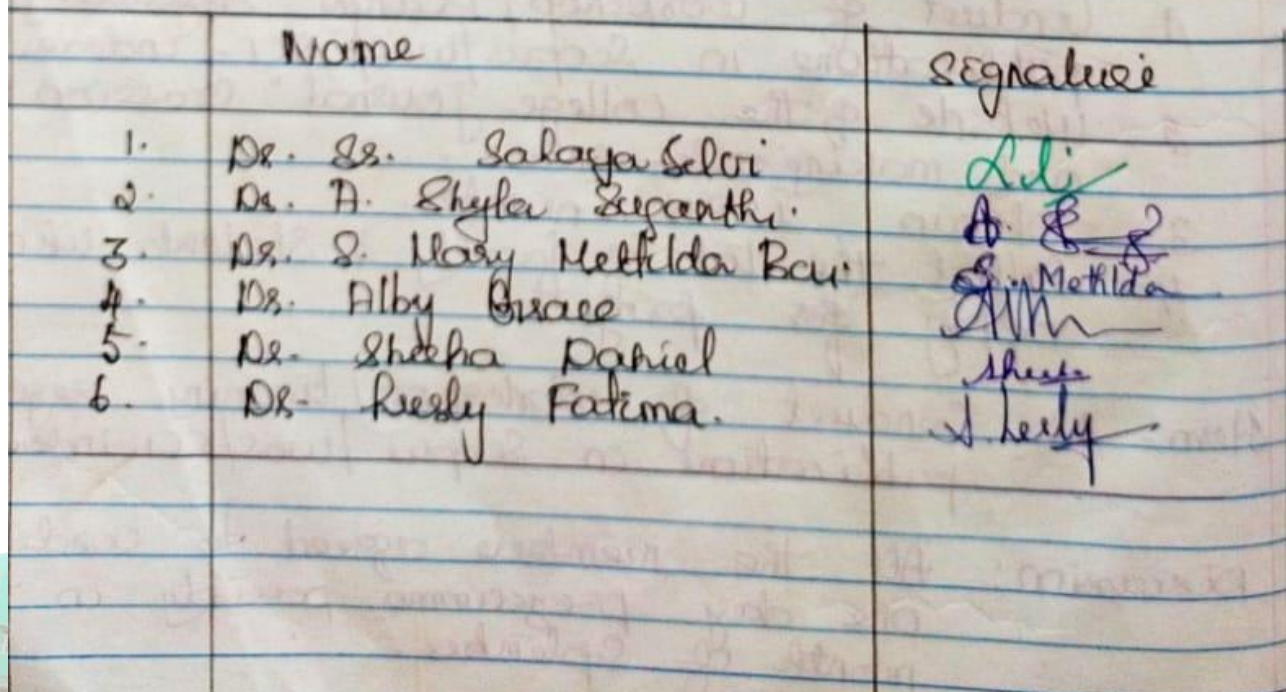 Name Signature
1. Dr. Sr. Sahaya Selvi
2. Dr. A. Shyla Suganthi. A.
3. Dr. S. Mary Mettilda Bai. S. Metilda
4. Dr. Alby Grace
5. Dr. Sheeba Daniel Sheeba
6. Dr. Lesly Fatima. S. Lesly